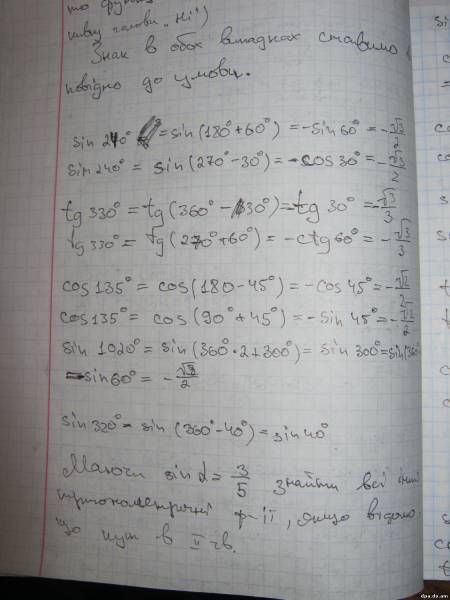 то функ
тивну голови „Ні")
Знак в обох випадках ставимо
повідно до умови.
sin 240° = sin(180°+60°) = -sin 60° = -√3/2
sin 240° = sin(270°-30°) = -cos 30° = -√3/2
tg 330° = tg(360°-30°) = -tg 30° = -√3/3
tg 330° = tg(270°+60°) = -ctg 60° = -√3/3
cos 135° = cos(180-45°) = -cos 45° = -√2/2
cos 135° = cos(90°+45°) = -sin 45° = -√2/2
sin 1020° = sin(360°·2+300°) = sin 300° = sin(360°
-sin 60° = -√3/2
sin 320° = sin(360°-40°) = sin 40°
Маючи sin α = 3/5 знайти всі інші
тригонометричні ф-ії, якщо відомо
що кут в II чв.
dpa.dn.am